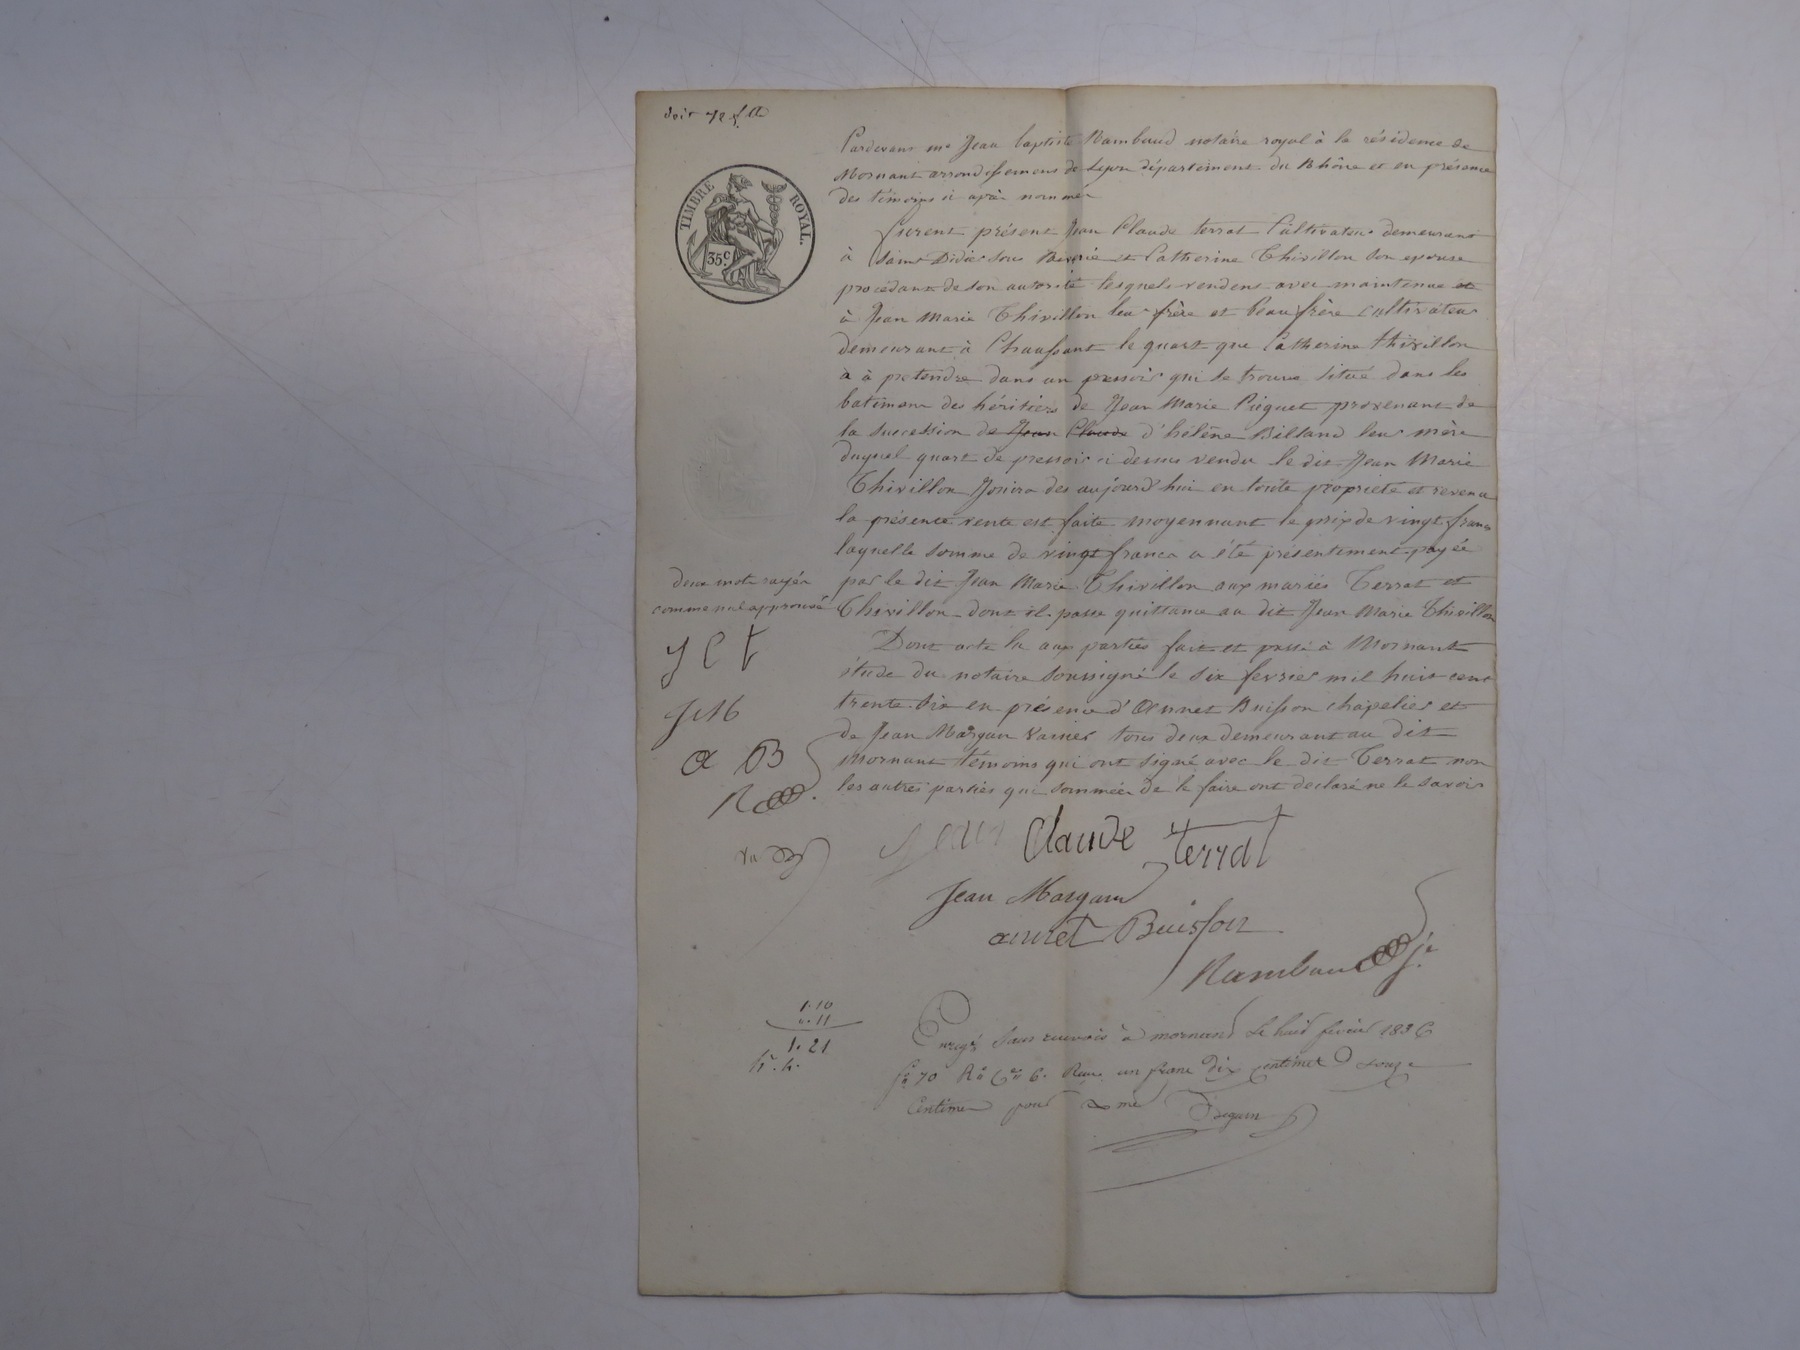 doit
Pardevant me Jean baptiste Rambaud notaire royal à la résidence de
Mornant arrondissement de Lyon département du Rhône et en présence
des témoins ci après nommés
TIMBRE ROYAL.
35 c
furent présent Jean Claude terrat Cultivateur demeurant
à Saint Didier sous Riverie et Catherine Thivillon son epouse
procédant de son autorité lesquels vendent avec maintenue et
à Jean Marie Thivillon leur frère et beau frère cultivateur
demeurant à Chaussant le quart que Catherine thivillon
à à pretendre dans un pressoir qui se trouve situé dans les
batiment des héritiers de Jean Marie Piequet provenant de
la succession de Jean Claude d'hélène Billand leur mère
duquel quart de pressoir ci dessus vendu le dit Jean Marie
Thivillon Jouira des aujourd'hui en toute propriete et revenu
la présence vente est faite moyennant le prix de vingt francs
laquelle somme de vingt francs a été présentement payée
deux mots rayés
par le dit Jean Marie Thivillon aux mariés Terrat et
comme nul approuvé
Thivillon dont il passe quittance au dit Jean Marie Thivillon
J C t
Dont acte lu aux parties fait et passé à Mornant
étude du notaire soussigné le six fevrier mil huit cent
trente six en présence d'Annet Buisson chapelier et
a B
de Jean Margaru tous deux demeurant au dit
Mornant témoins qui ont signé avec le dit Terrat non
R
les autres parties qui sommées de le faire ont déclaré ne le savoir
Jean Claude terrat
Jean Margaru
annet Buisson
Rambaud
1. 10
0. 11
1. 21
sans renvois à mornant Le huit fevrier 1836
fo 70 Ro 6. Reçu un franc dix centimes onze
Centimes pour